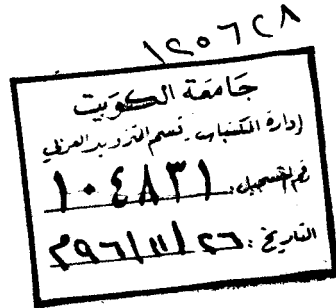 ١٢٥٦٢٨
جامعة الكويت
إدارة المكتبات - قسم التزويد العربي
رقم التسجيل: ١٠٤٨٣١
التاريخ: ٢٦/١١/٩٦م